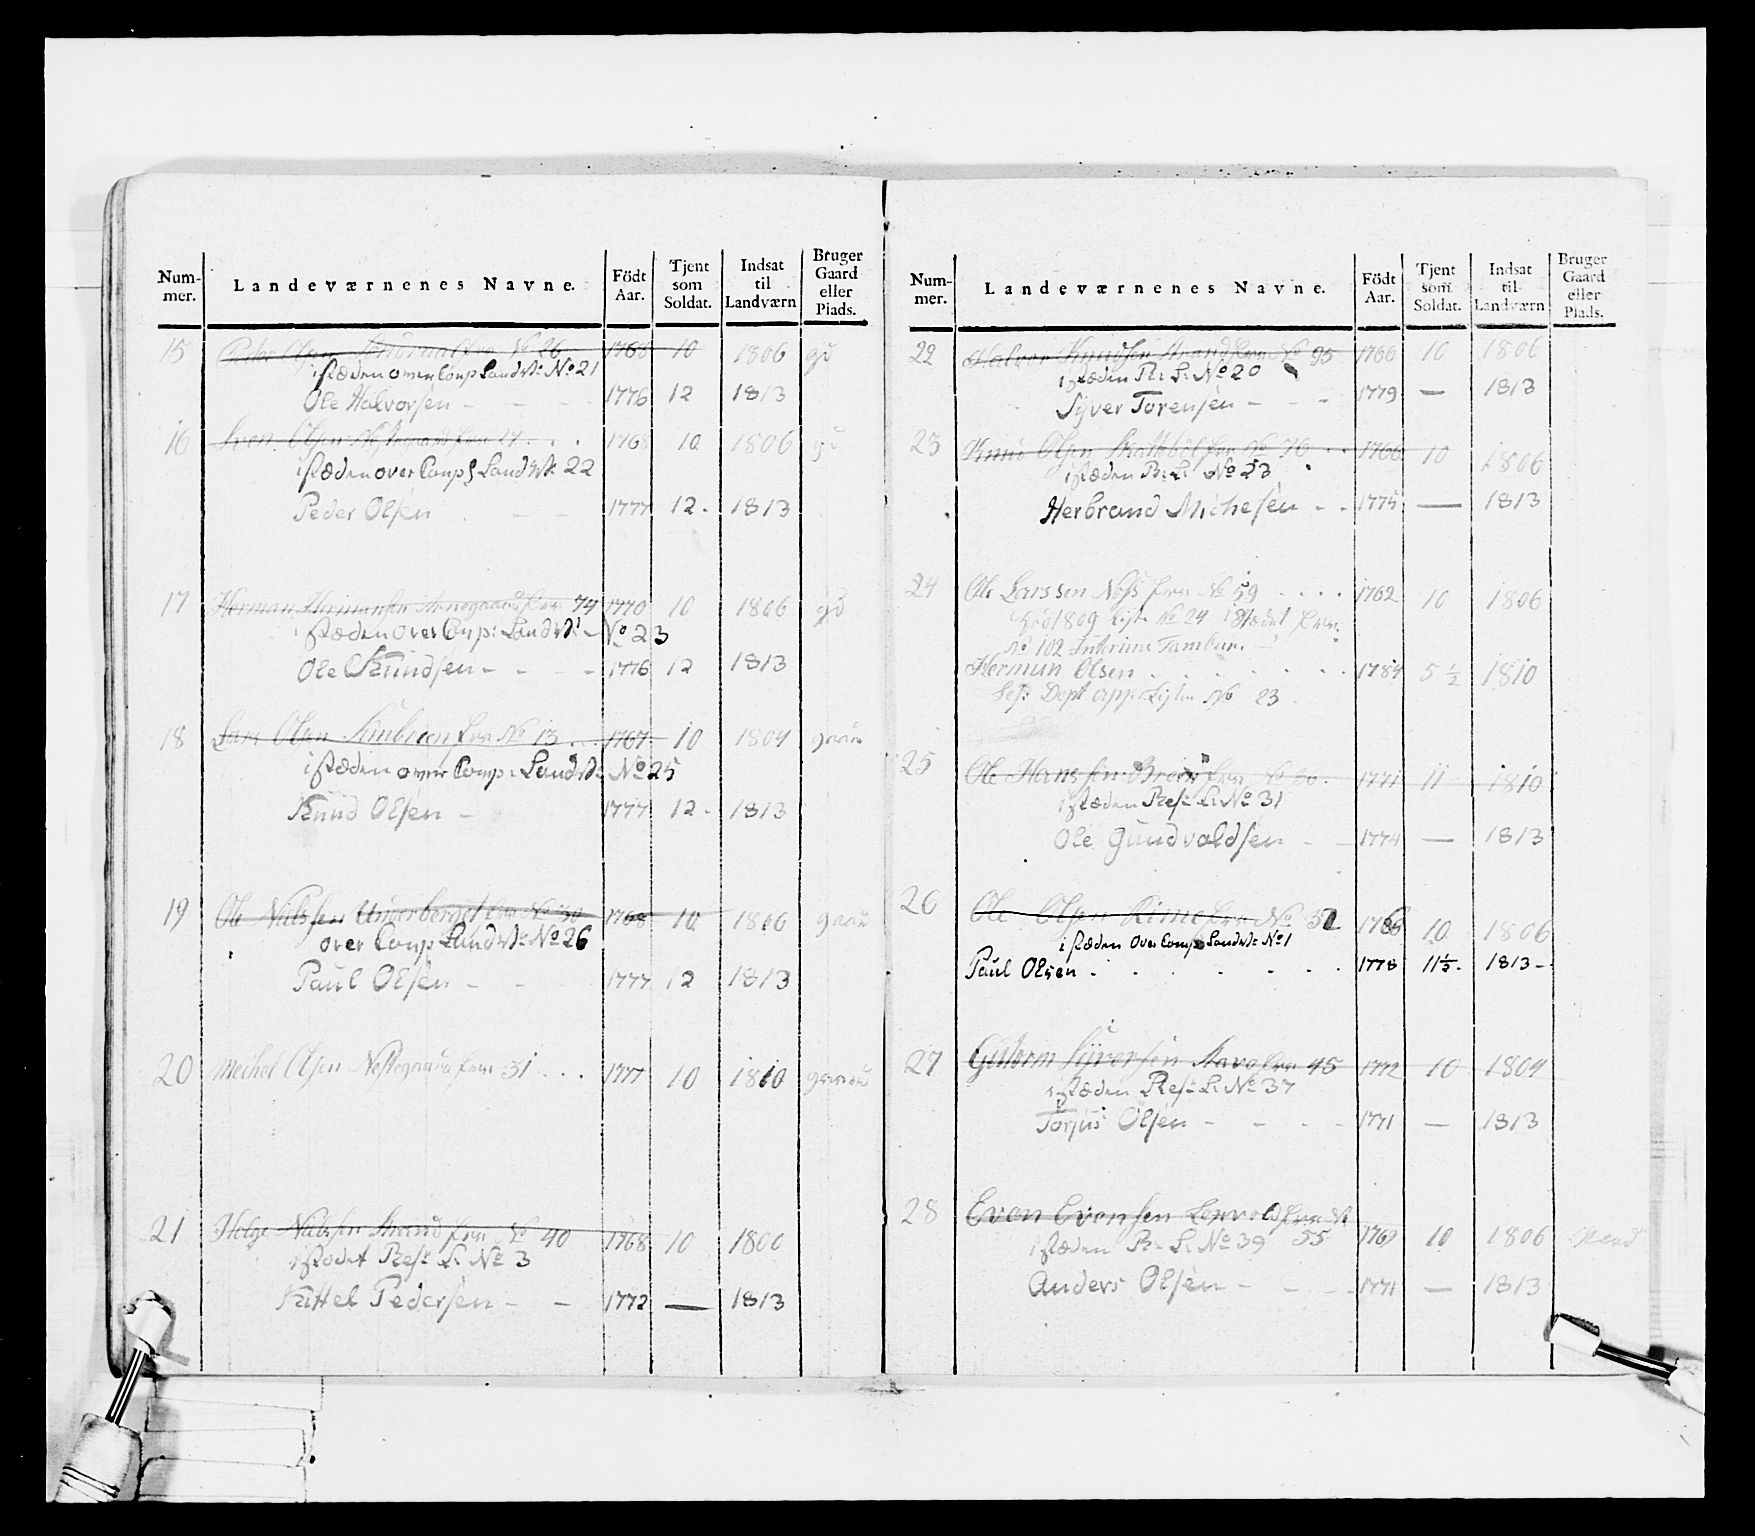 Num-mer. Landeværnenes Navne. Födt Aar. Tjent som Soldat. Indsat til Landværn Bruger Gaard eller Plads.
15 Peder Olsen No 26 1768 10 1806 gd
istæden over Comp Landv: No 21
Ole Halvorsen - - - 1776 12 1813
16 Sven Olsen fra 27 1768 10 1806 gd
istæden over Comp Landv: 22
Peder Olsen - - 1777 12. 1813
17 Herman Hermansen fra 74 1770 10 1806 gd
istæden over Comp: Landv: No 23
Ole Knudsen - - - 1776 12 1813
18 Lars Olsen fra No 13 1767 10 1804
istæden over Comp: Landv: No 25
Knud Olsen - 1777 12. 1813
19 Ole Nielssen Underberget fra No 30 1768 10 1806 gaard
over Comp Landv: No 26
Paul Olsen - - 1777 12 1813
20 Michel Olsen Nestegaard fra 31 . . . 1777 10 1810 gaard
21 Helge Nielssen Strand fra No 40 1768 10 1806
istædet Res: L: No 3
Kittel Pedersen - - 1772 — 1813
Num-mer. Landeværnenes Navne. Födt Aar. Tjent som Soldat. Indsat til Landværn Bruger Gaard eller Plads.
22 Halvor Knudsen Strand fra No 95 1766 10 1806
istæden R: L: No 20
Syver Torensen - - - 1779 — 1813
23 Knud Olsen fra No 70 1766 10 1806
istæden R: L: No 23
Herbrand Michelsen - - 1775 — 1813
24 Ole Larssen Ness fra No 59 . . . . 1762 10 1806
1809 No 24 istædet fra
No 102 Interims Tambur.
Herman Olsen . . . . . . . 1784 5 1/2 1810
Sess: Dept app: Liste No 23
25 Ole Hanssen Broen fra No 30 . 1771 11 1810
istæden Res: L: No 31
Ole Gundvaldsen - - 1774 — 1813
26 Ole Olsen fra No 32 1766 10 1806
istæden Over Comp Landv: No 1
Paul Olsen . . . . - - . 1778 11 1/2. 1813-
27 Guttorm Syversen fra 45 1772 10 1804
istæden Res: L: No 37
Torjus Olsen - - - - 1771 — 1813
28 Even Evensen fra No 55 1769 10 1806
istæden R: L: No 39
Anders Olsen - - - 1771 — 1813